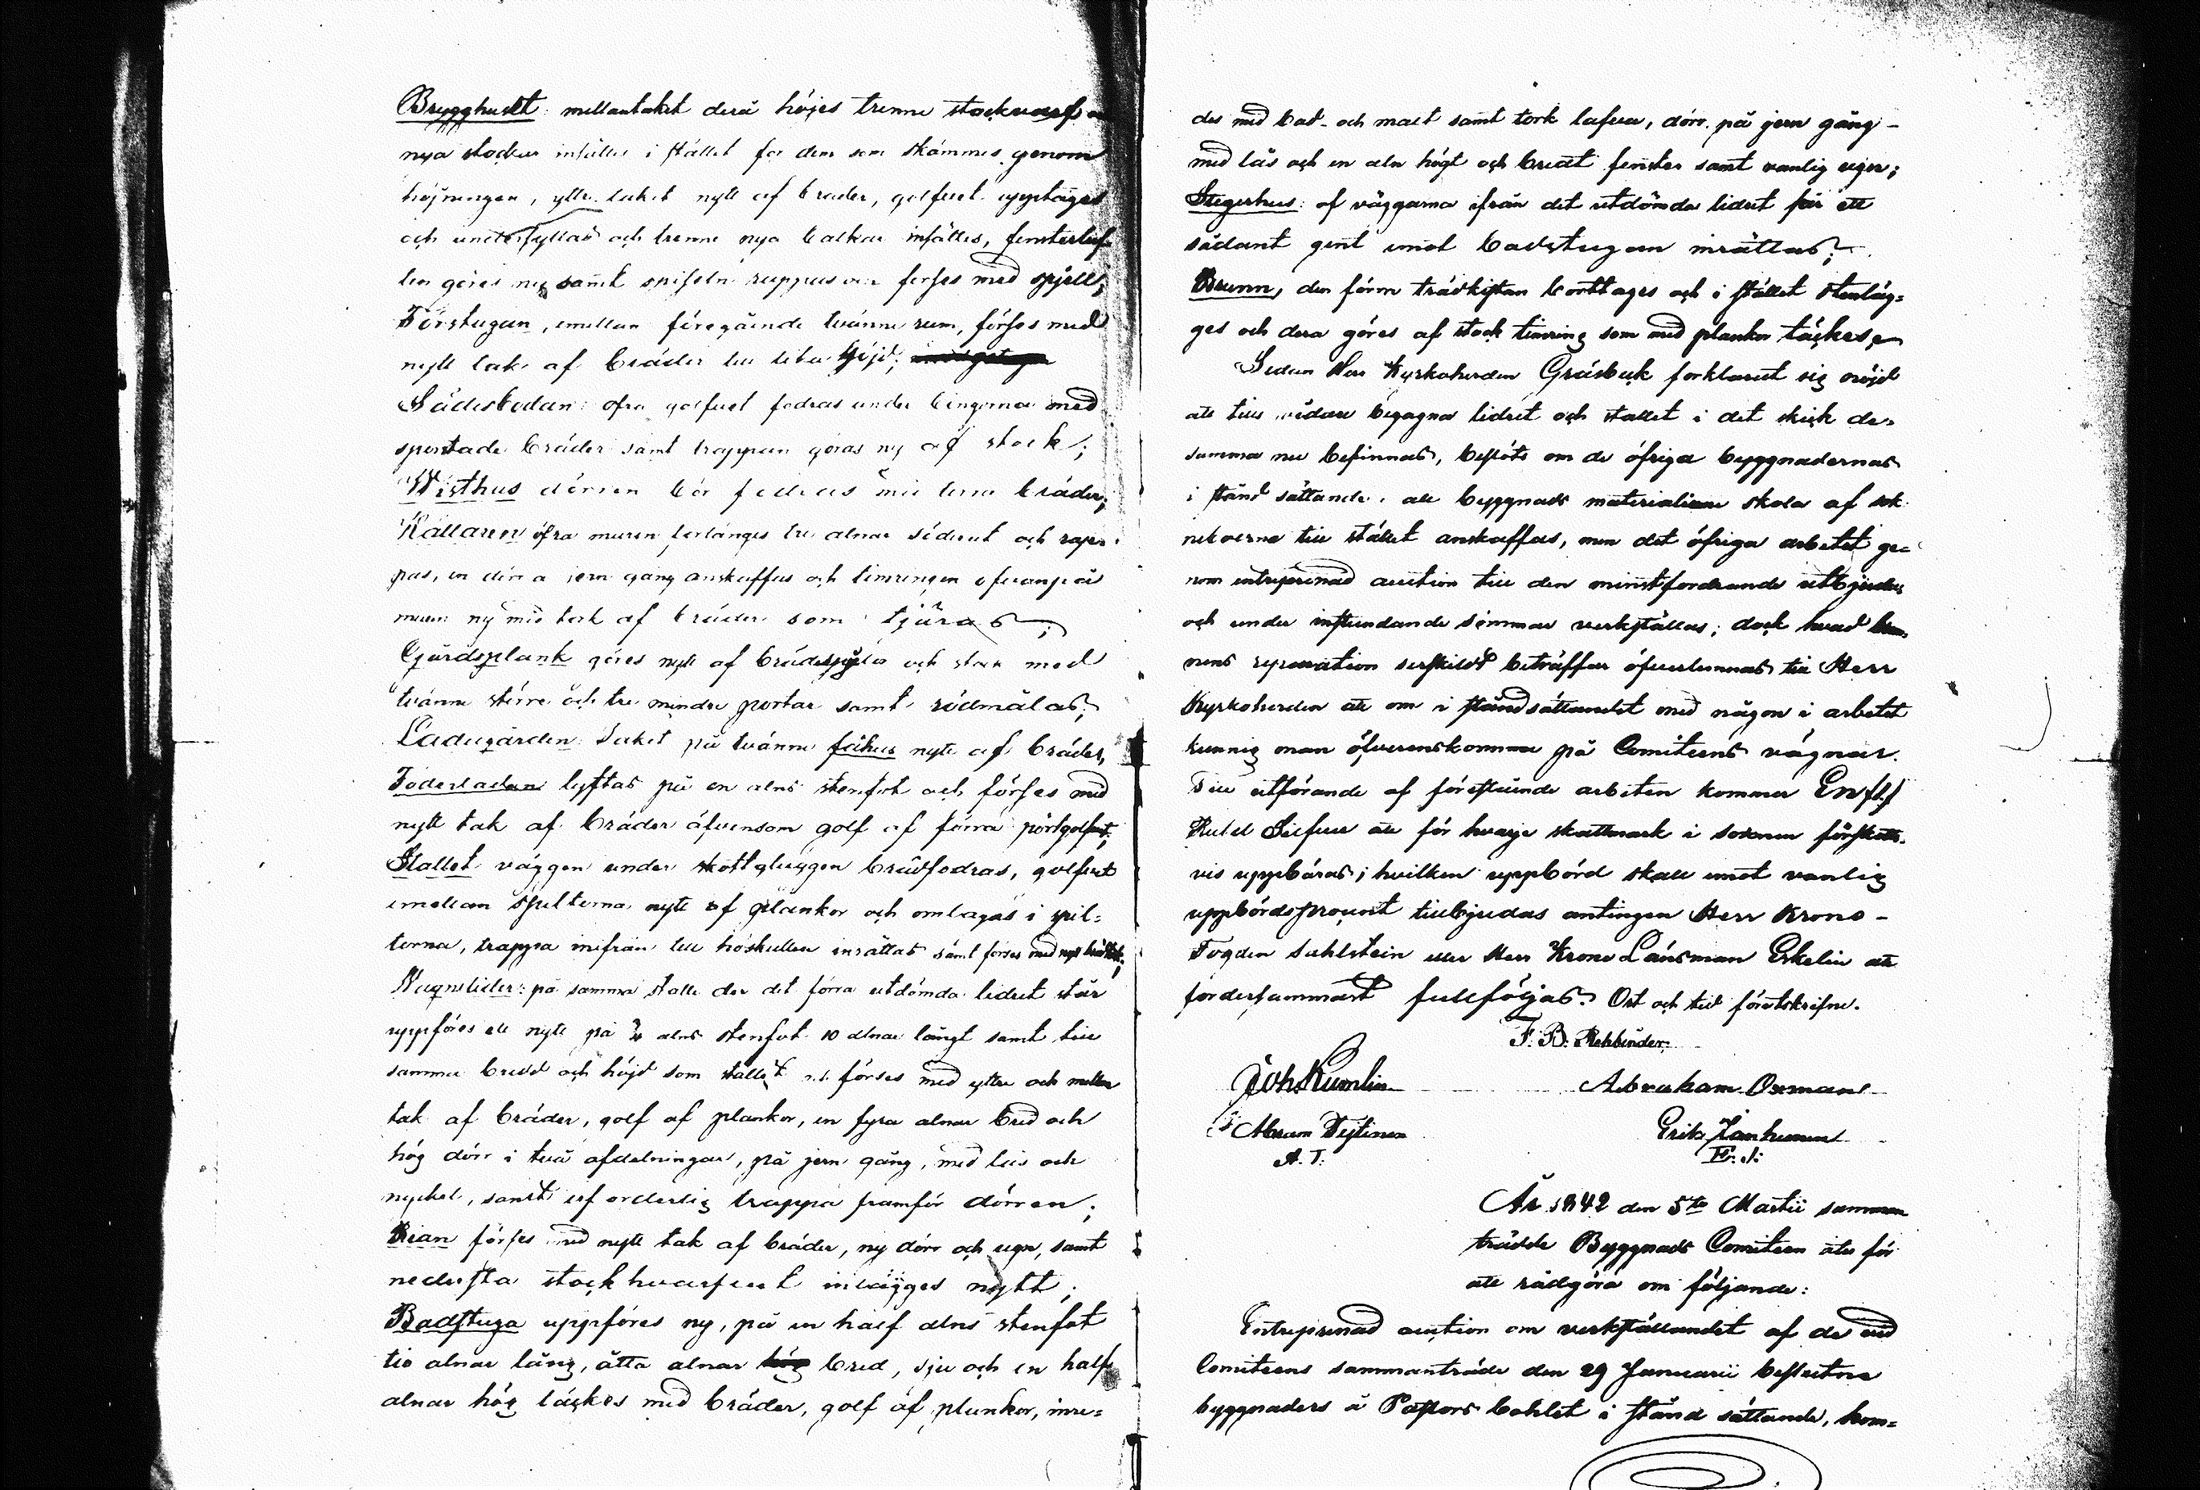 Brygghuset: mellantaket derå höjes trenne stockvarf o
nya stockar infälles i stället för dem som skämmes genom
höjningen, yttre taket nytt af bräder, golfvet upptages
och underfyllas och trenne nya balkar infälles, fensterluf-
ten göres ny samt spiseln rappas och förses med spjell;
Förstugan, emellan föregående tvänne rum, förses med
nytt tak af bräder till lika höjd;
Sädesboden: ofra golfvet fodras under bingarna med
spontade bräder samt trappan göras ny af stock;
Wisthus dörren bör fodras med tunna bräder;
Källaren öfra muren förlänges tre alnar söderut och rap-
pas, en dörr a jern gång anskaffas och timringen ofvanpå
muren ny med tak af bräder som tjäras;
Gårdsplank göres nytt af brädspjelor och stock med
tvänne större och tre mindre portar samt rödmålas;
Ladugården: taket på tvänne fähus nytt af bräder,
Foderladan lyftas på en alns stenfot och förses med
nytt tak af bräder äfvensom golf af förra pörtgolfvet;
Stallet väggen under skottgluggen brädfodras, golfvet
emellan spiltorna nytt af plankor och omlagas i spil-
torna, trappa inifrån till höskullen inrättas samt förses med nytt brädtak;
Vagnslider: på samma stalle der det förra utdömda lidret står
uppföres ett nytt på ¾ alns stenfot 10 alnar långt samt till
samma bredd och höjd som stallet och förses med yttre och mellan
tak af bräder, golf af plankor, en fyra alnar bred och
hög dörr i två afdelningar, på jern gång, med lås och
nyckel, samt erforderlig trappa framför dörren;
Rian förses med nytt tak af bräder, ny dörr och ugn, samt
nedersta stockhvarfvet inlägges nytt;
Badstuga uppföres ny, på en half alns stenfot
tio alnar lång, åtta alnar bred, sju och en half
alnar hög täckes med bräder, golf af plankor, inre-
des med bad- och malt samt tork lafvar, dörr på jern gång
med lås och en aln högt och bredt fenster samt vanlig ugn;
Stegerhus: af väggarna ifrån det utdömda lidret får ett
sådant gent emot badstugan inrättas;
Brunn, den förra trädkistan borttages och i stället stenläg-
ges och dera göres af stock timring som med plankor täckes.
Sedan Herr Kyrkoherden Gråsbeck forklarat sig nöjd
att tills vidare begagna lidret och stallet i det skick de-
samma nu befinnas, beslöts om de öfriga byggnadernas
i stånd sättande, att byggnads materialierne skola af sok-
neboerne till stället anskaffas, men det öfriga arbetet ge-
nom entreprenad auction till den minstfordrande utbjudes
och under instundande sommar verkställas; dock hvad brun-
nens reparation serskildt beträffar öfverlemnas till Herr
Kyrkoherden att om i ståndsättandet med någon i arbetet
kunnig man öfverenskomma på Comiteens vägnar.
Till utförande af förestående arbeten kommer En (1)
Rubel Silfver att för hvarje skattmark i soknen förskotts-
vis uppbäras; hvilken uppbörd skall emot vanlig
uppbördsprocent tillbjudas antingen Herr Krono-
Fogden Sahlstein eller Herr Krono Länsman Eskelin att
fordersammast fullföljas. Ort och tid förutskrifne.
F. B. Rehbinder.
Joh Kumlin Abraham Oxman
Abram Tejtinen Erik Janhunen
A. T. E. J.
År 1842 den 5te Martii samman
trädde Byggnads Comiteen åter för
att rådgöra om följande:
Entreprenad auction om verkställandet af de vid
Comiteens sammanträde den 29 Januarii beslutna
byggnaders å Pastors bohlet i stånd sättande, kom-